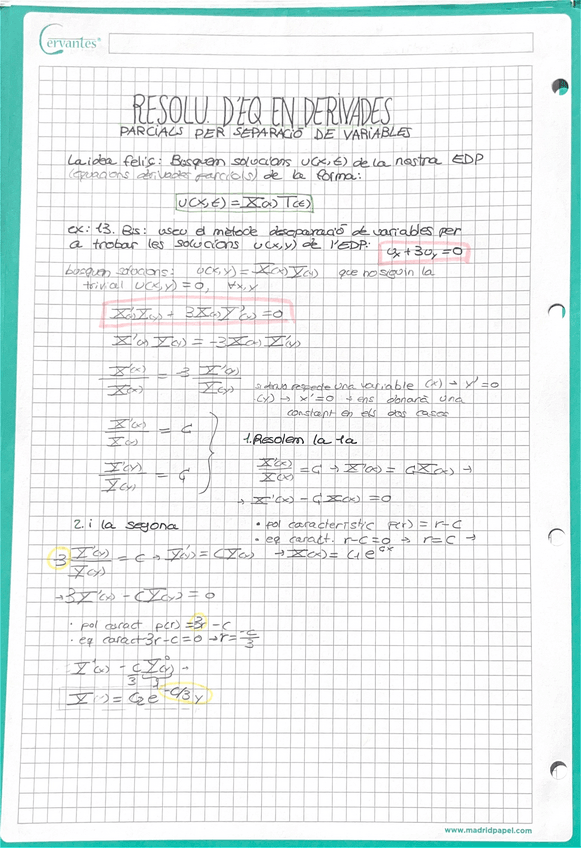 Cervantes
RESOLU. D'EQ EN DERIVADES
PARCIALS PER SEPARACIÓ DE VARIABLES
La idea feliç: Busquem solucions u(x,t) de la nostra EDP
(equacions derivades parcials) de la forma:
u(x,t) = X(x) T(t)
ex: 13. Bis: useu el mètode de separació de variables per
a trobar les solucions u(x,y) de l'EDP: ux + 3uy = 0
busquem solucions: u(x,y) = X(x) Y(y) que no siguin la
trivial u(x,y) = 0, ∀x,y
X'(x) Y(y) + 3X(x) Y'(y) = 0
X'(x) Y(y) = -3X(x) Y'(y)
X'(x)/X(x) = -3 Y'(y)/Y(y)
respecte una variable (x) → y' = 0
(y) → x' = 0 → ens donarà una
constant en els dos casos
X'(x)/X(x) = C
Y'(y)/Y(y) = C
1. Resolem la 1a
X'(x)/X(x) = C → X'(x) = C X(x) →
→ X'(x) - C X(x) = 0
• pol característic p(r) = r - C
• eq caract. r - C = 0 → r = C →
→ X(x) = C1 e^Cx
2. i la segona
-3 Y'(y)/Y(y) = C → Y'(y) = C Y(y)
→ 3Y'(y) - C Y(y) = 0
• pol caract p(r) = 3r - C
• eq caract 3r - C = 0 → r = -C/3
Y'(x) - C/3 Y(y)
Y( ) = C2 e^-C/3 y
www.madridpapel.com